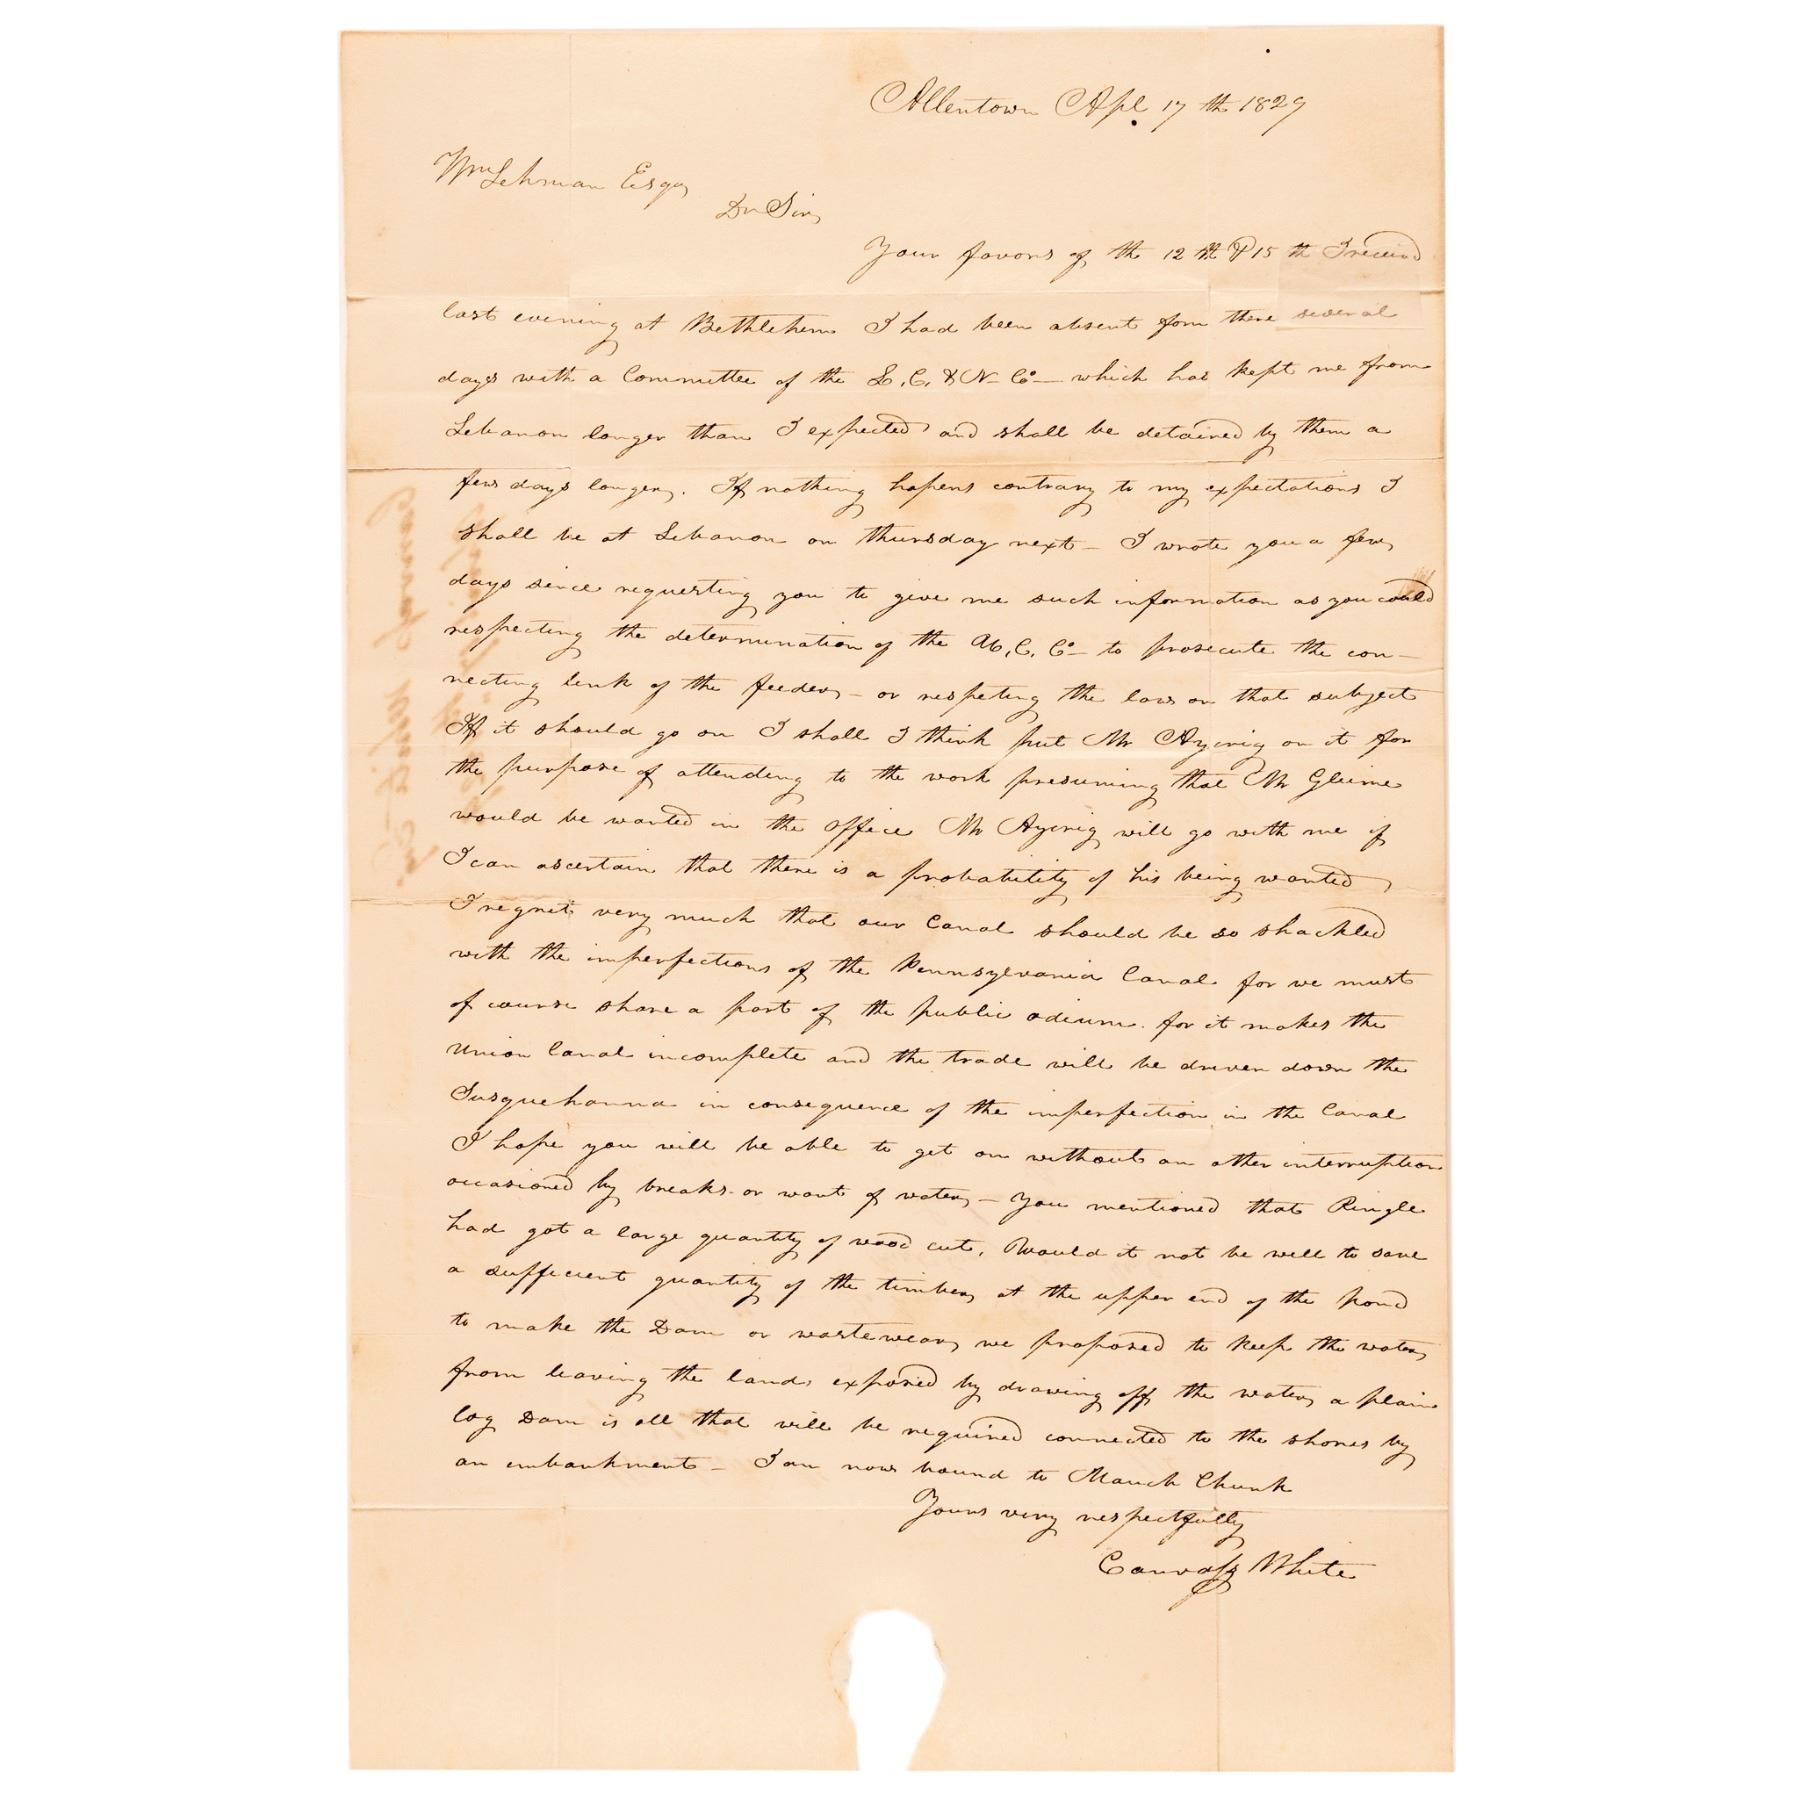 Allentown Apl. 17th 1829
Wm Lehman Esqr
Dr Sir,
Your favors of the 12th & 15th I received
last evening at Bethlehem I had been absent from there several
days with a Committee of the L. C. & N- Co- which has kept me from
Lebanon longer than I expected and shall be detained by them a
few days longer. If nothing hapens contrary to my expectations I
shall be at Lebanon on thursday next- I wrote you a few
days since requesting you to give me such information as you could
respecting the determination of the C. Co- to prosecute the con-
necting link of the feeder,- or respeting the law on that subject
If it should go on I shall I think put Mr Aycrig on it for
the purpose of attending to the work presuming that Mr Gleime
would be wanted in the office Mr Aycrig will go with me if
I can ascertain that there is a probability of his being wanted
I regret very much that our Canal should be so shackled
with the imperfections of the Pennsylvania Canal for we must
of course share a part of the public odium. for it makes the
Union Canal incomplete and the trade will be driven down the
Susquehanna in consequence of the imperfection in the Canal
I hope you will be able to get on without an other interruption
occasioned by breaks or want of water,- You mentioned that Ringle
had got a large quantity of wood cut, Would it not be well to save
a sufficient quantity of the timber, at the upper end of the pond
to make the Dam or wastewear, we proposed to keep the water,
from leaving the lands exposed by drawing off the water, a plain
log Dam is all that will be required connected to the shores by
an embankment- I am now bound to Mauch Chunk
Yours very respectfully
Canvass White